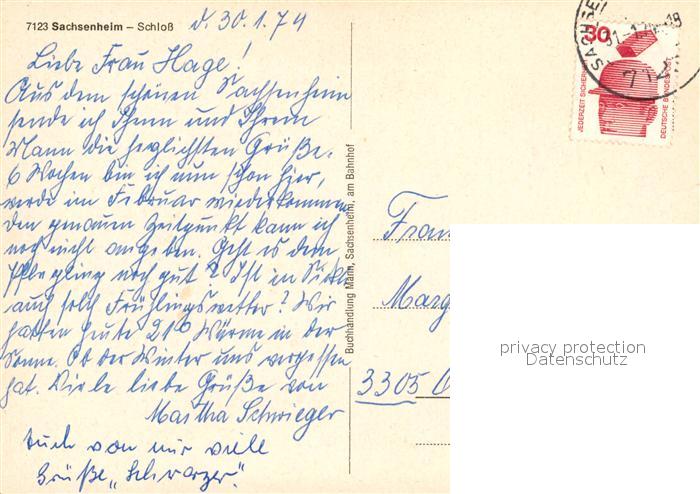 7123 Sachsenheim – Schloß
d. 30.1.74
Liebe Frau Hage!
Aus dem schönen Sachsenheim
sende ich Ihnen und Ihrem
Mann die herzlichsten Grüße.
6 Wochen bin ich nun schon hier,
werde im Februar wiederkommen
den genauen Zeitpunkt kann ich
noch nicht angeben. Geht es dem
Pflegling noch gut? Ist in
auch solch Frühlingswetter? Wir
hatten heute 21° Wärme in der
Sonne. Ob der Winter uns vergessen
hat. Viele liebe Grüße von
Martha Schwieger
Auch von mir viele
Grüße „Schwarzer".
Buchhandlung Mann, Sachsenheim, am Bahnhof
30
JEDERZEIT SICHERHEIT
DEUTSCHE BUNDESPOST
SACHSE
31.-1.
-18
712
Frau
Marg
3305
privacy protection
Datenschutz